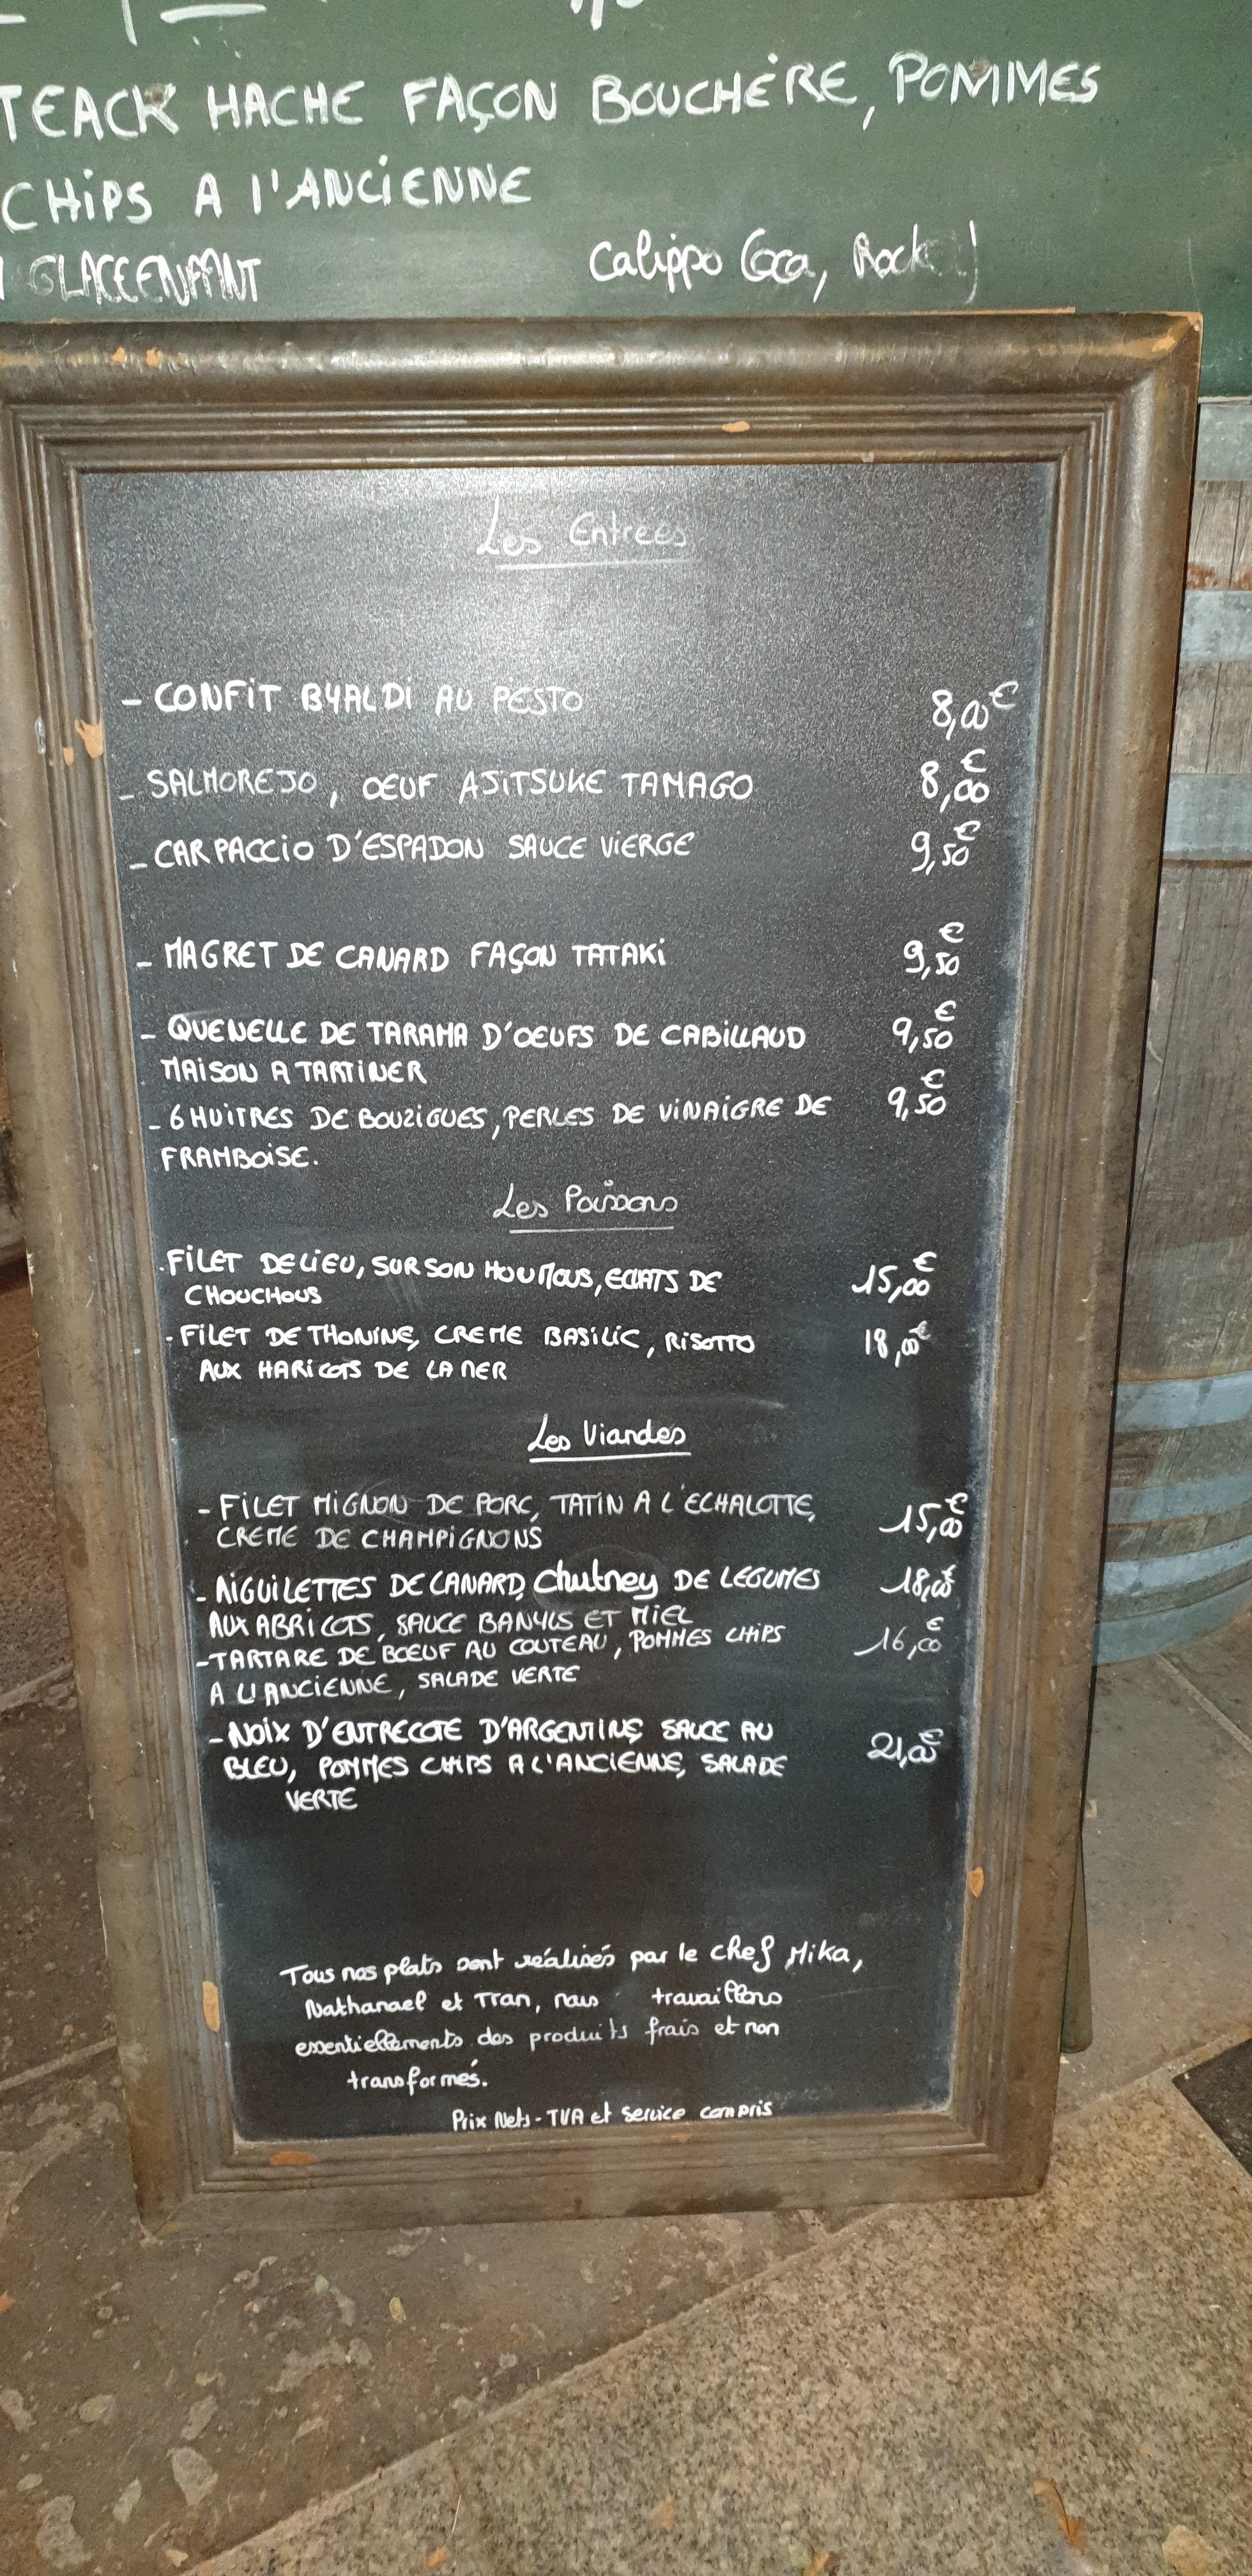 TEACK HACHE FAÇON BOUCHÈRE, POMMES
CHIPS A l'ANCIENNE
GLACE ENFANT Calippo Coca, Rocket
Les Entrees
- CONFIT BYALDI AU PESTO 8,00€
- SALMOREJO, OEUF AJITSUKE TAMAGO 8,00€
- CARPACCIO D'ESPADON SAUCE VIERGE 9,50€
- MAGRET DE CANARD FAÇON TATAKI 9,50€
- QUENELLE DE TARAMA D'OEUFS DE CABILLAUD 9,50€
MAISON A TARTINER
- 6 HUITRES DE BOUZIGUES, PERLES DE VINAIGRE DE 9,50€
FRAMBOISE.
Les Poissons
. FILET DE LIEU, SUR SON HOUMOUS, ECLATS DE 15,00€
CHOUCHOUS
- FILET DE THONINE, CREME BASILIC, RISOTTO 18,00€
AUX HARICOTS DE LA MER
Les Viandes
- FILET MIGNON DE PORC, TATIN A L'ECHALOTTE, 15,00€
CREME DE CHAMPIGNONS
- AIGUILETTES DE CANARD, Chutney DE LEGUMES 18,00€
AUX ABRICOTS, SAUCE BANYLS ET MIEL
- TARTARE DE BOEUF AU COUTEAU, POMMES CHIPS 16,00€
A L'ANCIENNE, SALADE VERTE
- NOIX D'ENTRECOTE D'ARGENTINE, SAUCE AU 21,00€
BLEU, POMMES CHIPS A L'ANCIENNE, SALADE
VERTE
Tous nos plats sont réalisés par le chef Mika,
Nathanael et Tran, nous travaillons
essentiellements des produits frais et non
transformés.
Prix Nets - TVA et service compris